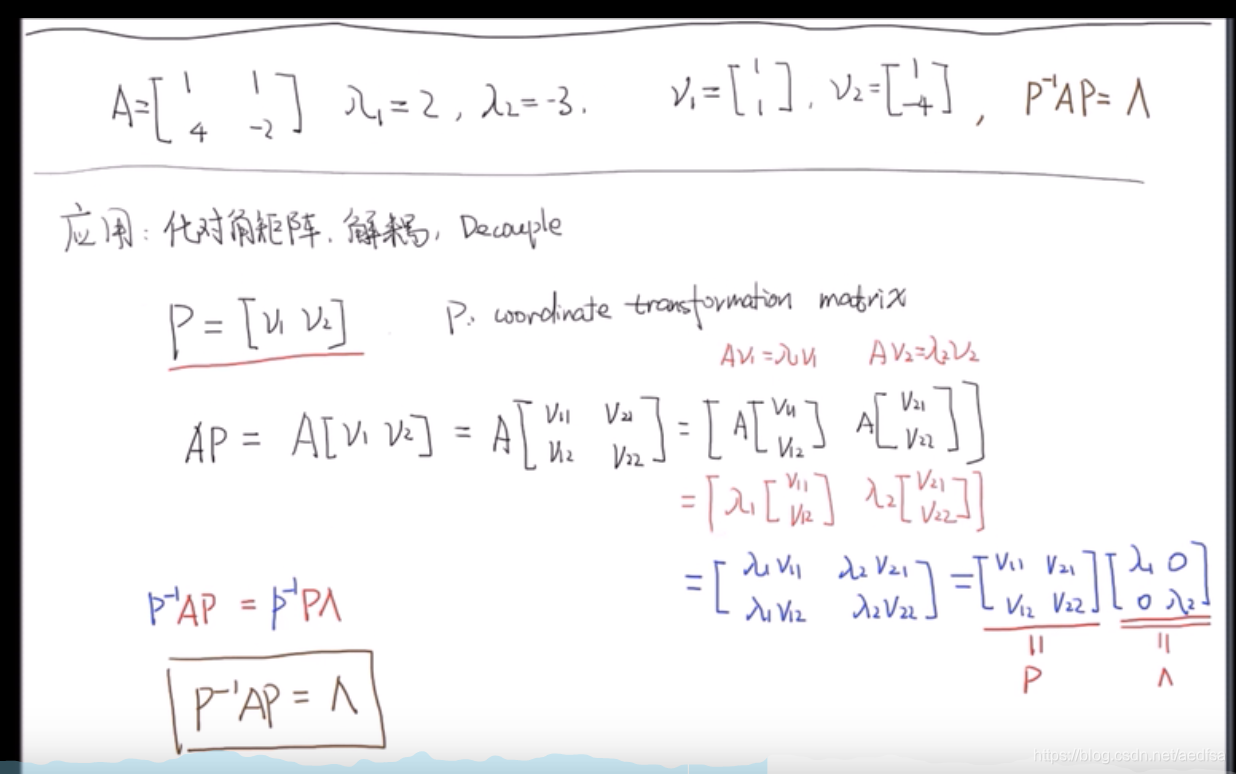 A = [1 1; 4 -2] λ₁ = 2, λ₂ = -3. V₁ = [1; 1], V₂ = [1; -4], P⁻¹AP = Λ
应用: 化对角矩阵. 解耦, Decouple
P = [V₁ V₂] P: coordinate transformation matrix
AV₁ = λ₁V₁ AV₂ = λ₂V₂
AP = A[V₁ V₂] = A[V₁₁ V₂₁; V₁₂ V₂₂] = [A[V₁₁; V₁₂] A[V₂₁; V₂₂]]
= [λ₁[V₁₁; V₁₂] λ₂[V₂₁; V₂₂]]
= [λ₁V₁₁ λ₂V₂₁; λ₁V₁₂ λ₂V₂₂] = [V₁₁ V₂₁; V₁₂ V₂₂] [λ₁ 0; 0 λ₂]
= P = Λ
P⁻¹AP = P⁻¹PΛ
P⁻¹AP = Λ